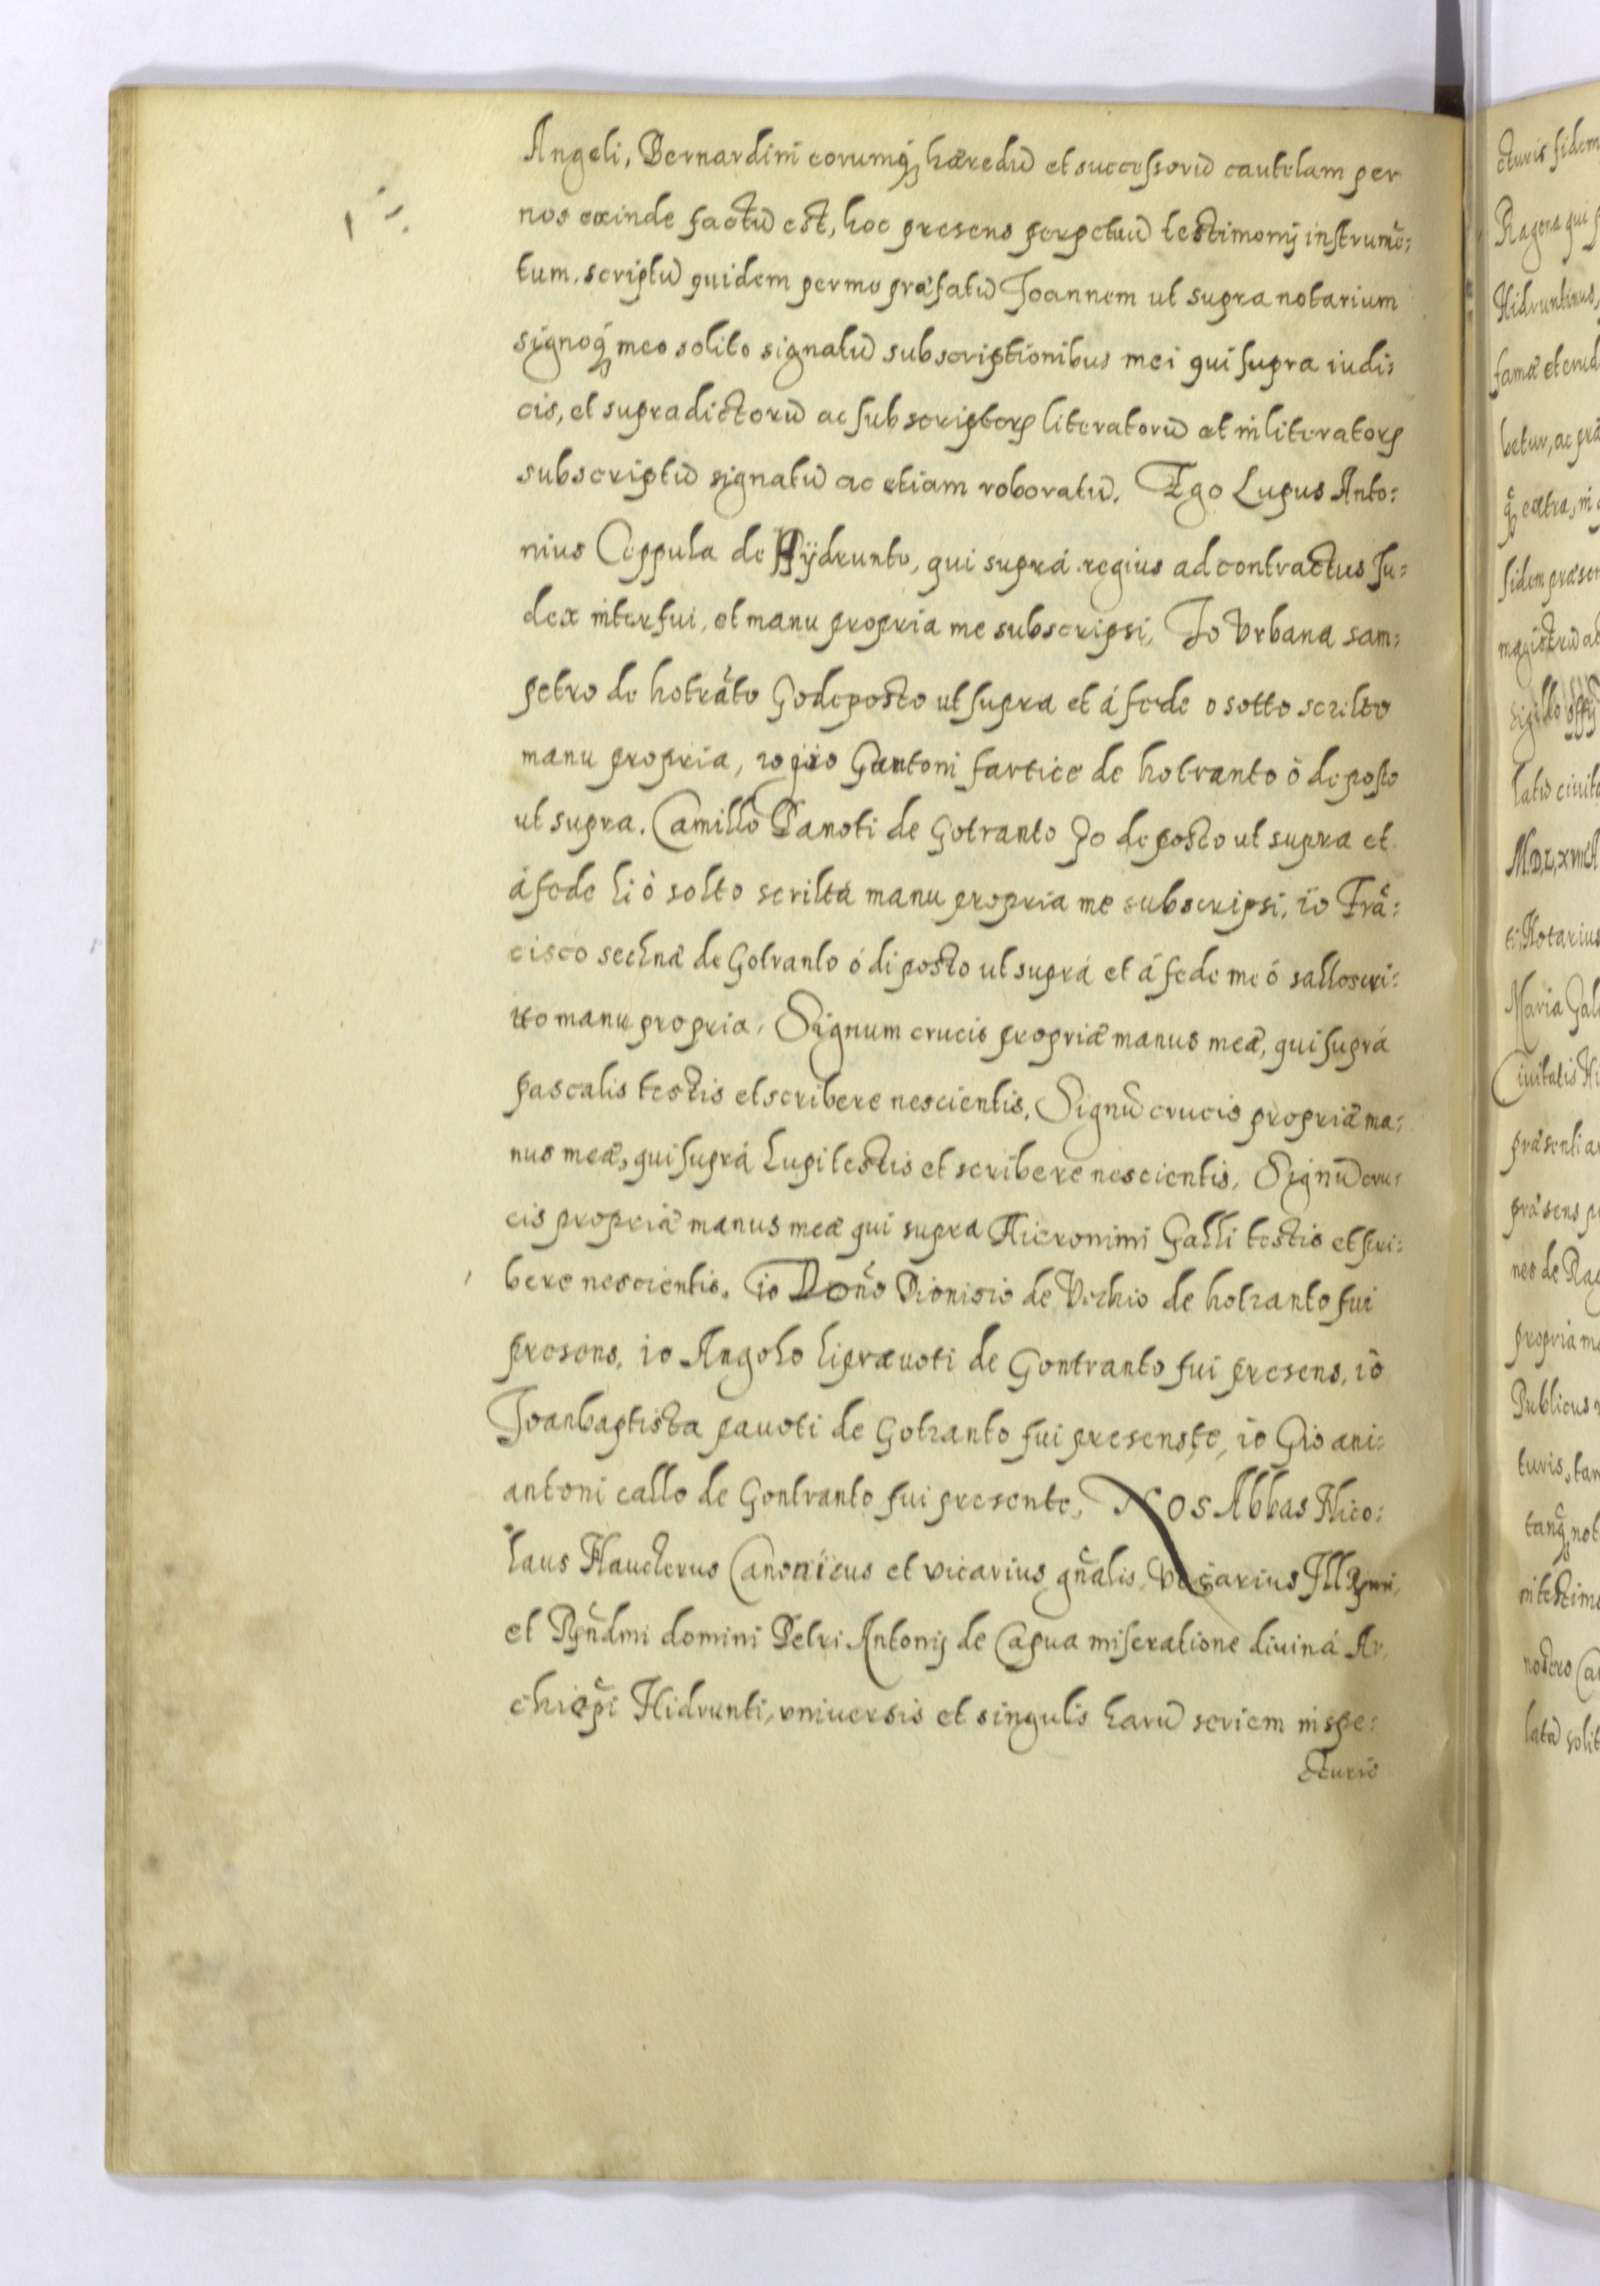 Angeli, Bernardini eorumq́ȝ hæredū et successorū cautelam per
nos exinde factū est, hoc presens perpetuū testimonij instrumē:
tum. scriptū quidem per me præfatū Joannem ut supra notarium
signoq́ȝ meo solito signatū subscriptionibus mei qui supra iudi:
cis, et supradictorū ac subscriptorꝝ literatorū et inliteratorꝝ
subscriptū signatū ac etiam roboratū. Ego Lupus Anto:
nius Coppula de Hÿdrunto, qui suprá regius ad contractus Ju:
dex interfui, et manu propria me subscripsi, Jo Vrbana sam:
petro de hotrāto Godeposto ut supra et á fede o sotto scritto
manu propria, Gantoni fartice de hotranto ò deposto
ut supra. Camillo Panoti de Gotranto Jo deposto ut supra et
á fede li ò solto scritta manu propria me subscripsi, io Frā:
cisco sechnæ de Gotranto ó di posto ut suprá et á fede me ó salloscri:
tto manu propria. Signum crucis propriæ manus meæ, qui suprá
pascalis testis et scribere nescientis. Signū crucis propriæ ma:
nus meæ, qui suprá Lupi testis et scribere nescientis. Signū cru:
cis propriæ manus meæ qui supra Hieronimi Galli testis et scri:
bere nescientis. io Dono Dionisio de Vechio de hotranto fui
presens, io Angolo liprævoti de Gontranto fui presens, iò
Joanbaptista pavoti de Gotranto fui presenste, iò Gio ani:
antoni callo de Gontranto fui presente, Nos Abbas Nico:
laus Hauclerus Canonicus et vicarius gñalis, Vicarius Jll
et Rñdmi domini Petri Antonij de Capua miseratione diuiná Ar
chiepī Hidrunti, vniuersis et singulis harū seriem inspe:
cturis
cturis fidem
Ragona qui
Hidruntinus,
famæ et
betur, ac
extra, in
fidem
magistrū
sigillo
latū
M.D.L.xviii
Notarius
Maria
Ciuitatis Hi
præsenti
præsens
nes de Rag
propria
Publicus
turis, tam
tanq́ȝ not
in
nostro Ca
lata solit